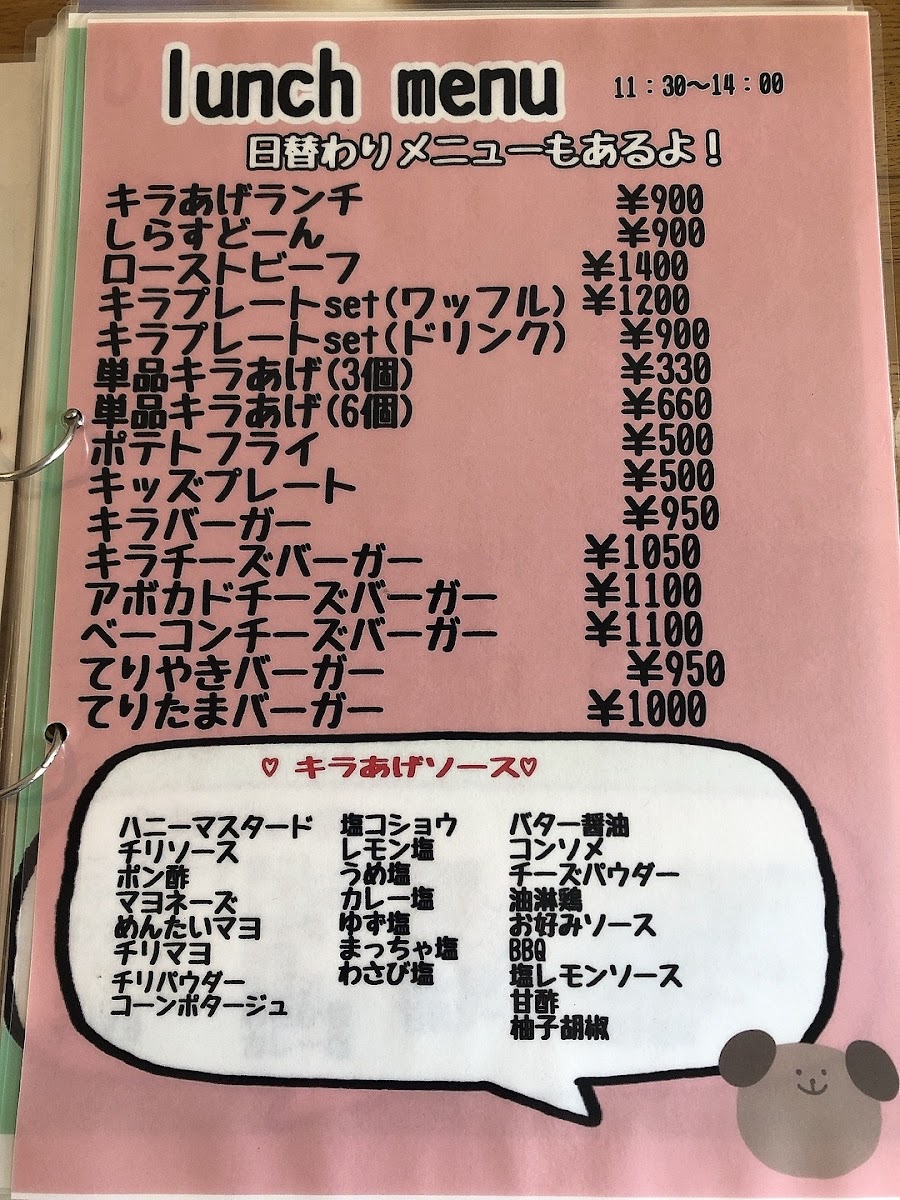 lunch menu 11：30〜14：00
日替わりメニューもあるよ！
キラあげランチ ¥900
しらすどーん ¥900
ローストビーフ ¥1400
キラプレートset(ワッフル) ¥1200
キラプレートset(ドリンク) ¥900
単品キラあげ(3個) ¥330
単品キラあげ(6個) ¥660
ポテトフライ ¥500
キッズプレート ¥500
キラバーガー ¥950
キラチーズバーガー ¥1050
アボカドチーズバーガー ¥1100
ベーコンチーズバーガー ¥1100
てりやきバーガー ¥950
てりたまバーガー ¥1000
♡ キラあげソース♡
ハニーマスタード
チリソース
ポン酢
マヨネーズ
めんたいマヨ
チリマヨ
チリパウダー
コーンポタージュ
塩コショウ
レモン塩
うめ塩
カレー塩
ゆず塩
まっちゃ塩
わさび塩
バター醤油
コンソメ
チーズパウダー
油淋鶏
お好みソース
BBQ
塩レモンソース
甘酢
柚子胡椒